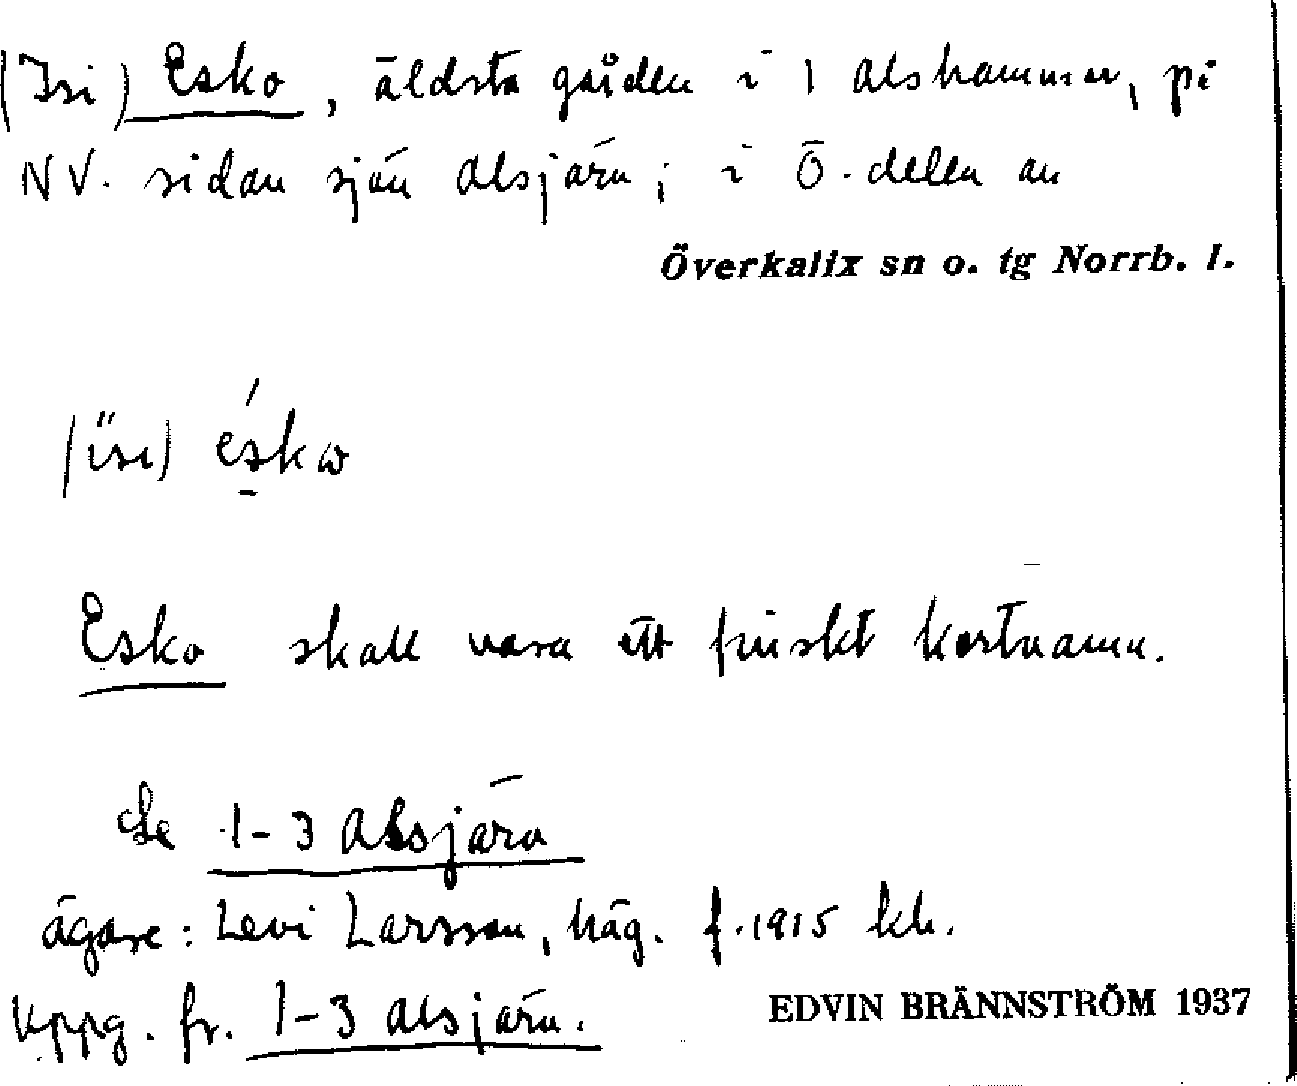 (Isi) Esko, äldsta gården i 1 Alshammar, på
NV. sidan sjön Alsjärv; i Ö. delen av
Överkalix sn o. tg Norrb. l.
(isi) ésko
Esko skall vara ett finskt kortnamn.
Se 1-3 Alsjärv
ägare: Levi Larsson, häg. f. 1915 kh.
Uppg. fr. 1-3 Alsjärv.
EDVIN BRÄNNSTRÖM 1937